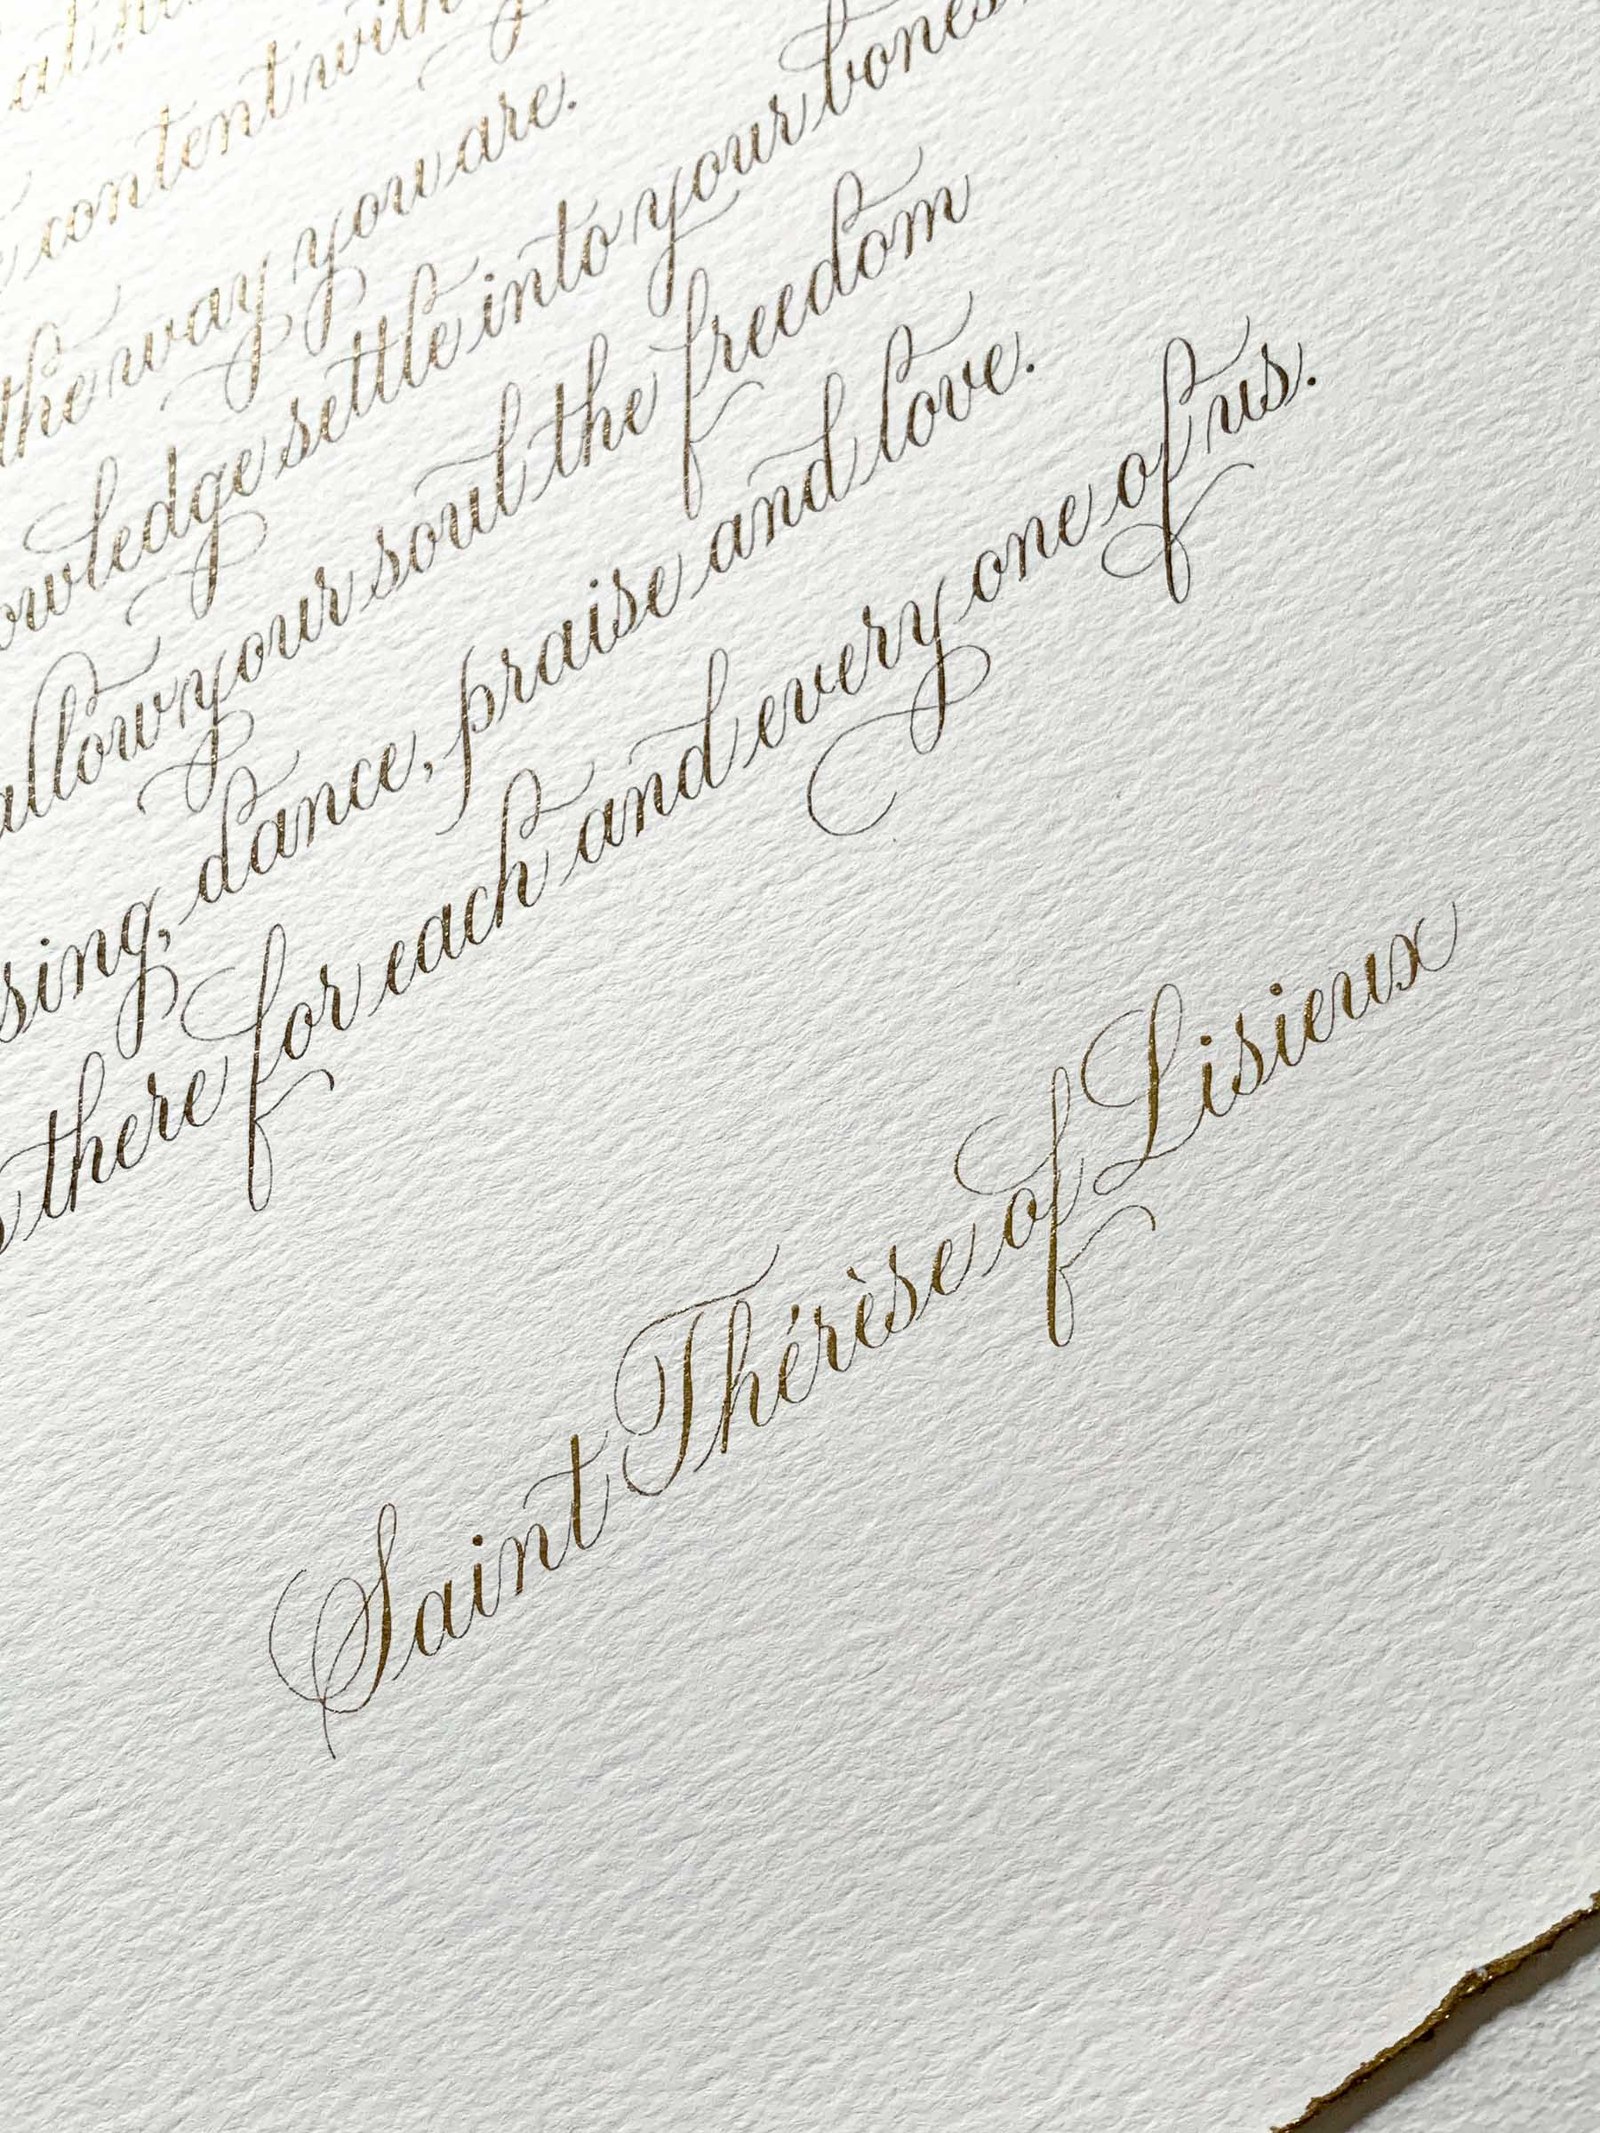 content with
the way you are.
settle into your bones
allow your soul the freedom
sing, dance, praise and love.
there for each and every one of us.
Saint Thérèse of Lisieux